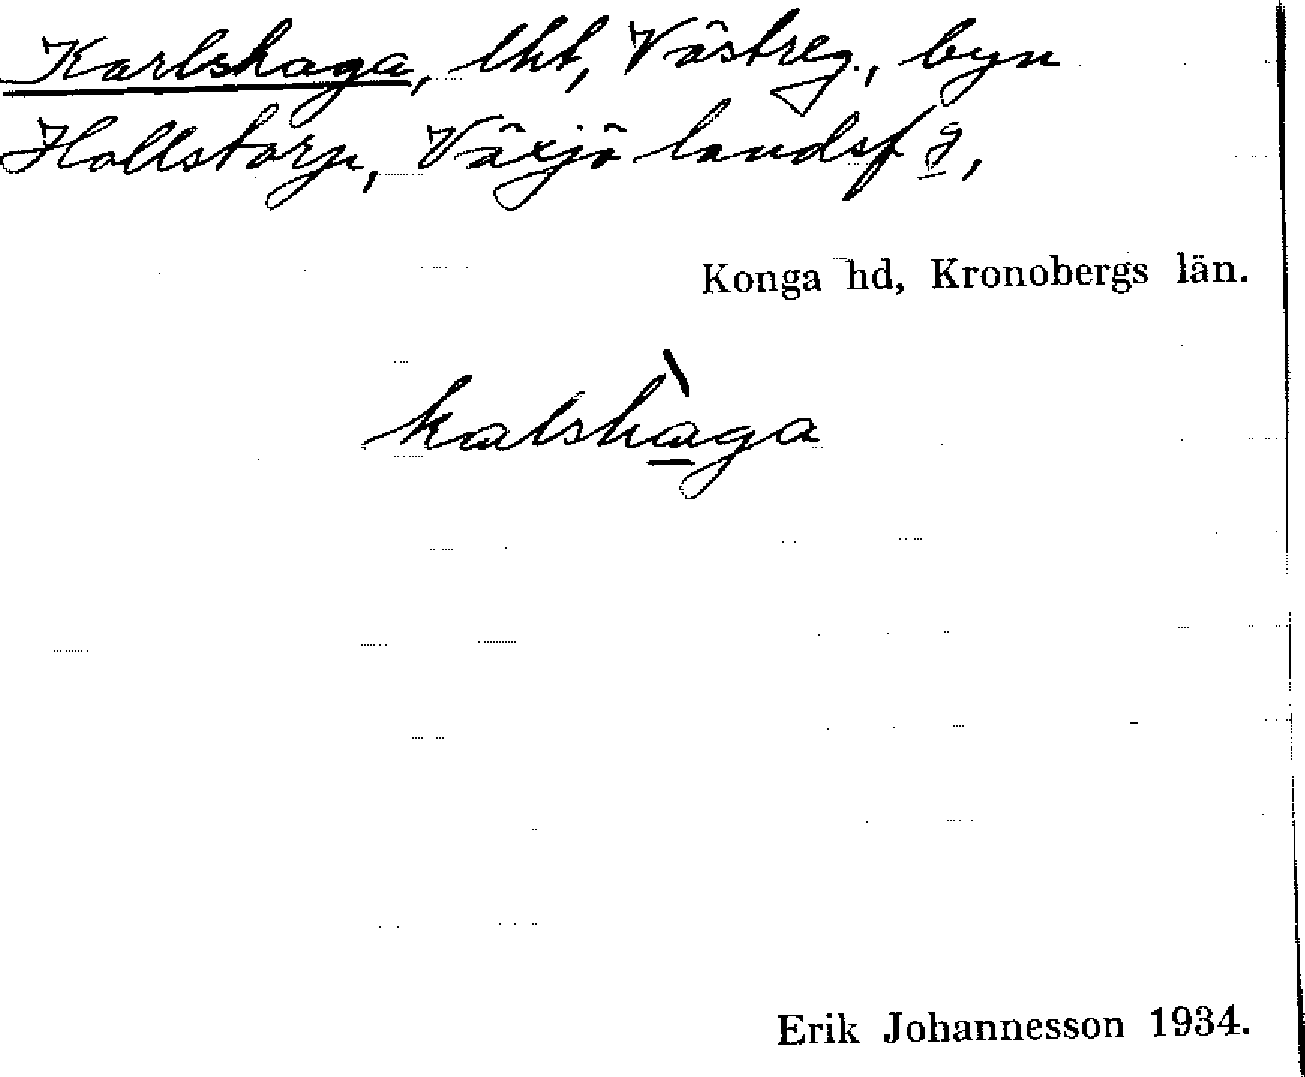 Karlshaga, lht, Västreg., byn
Hollstorp, Växjö landsf g,
Konga hd, Kronobergs län.
kalshàga
Erik Johannesson 1934.